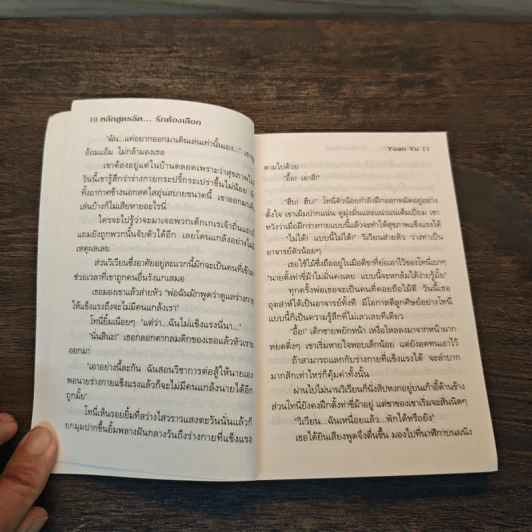 10 หลักสูตรลัด... รักต้องเลือก
"ฉัน...แค่อยากออกมาเดินเล่นเท่านั้นเอง..."
อ้อมแอ้ม ไม่กล้ามองเธอ
เขาต้องอยู่แต่ในบ้านตลอดเพราะว่าสุขภาพไม่
วันนี้เขารู้สึกว่าร่างกายกระปรี้กระเปร่าขึ้นไม่น้อย
ทั้งอากาศข้างนอกสดใสอุ่นสบายขนาดนี้ เขาออกมาเดิน
เล่นบ้างก็ไม่เสียหายอะไรนี่
ใครจะไปรู้ว่าจะมาเจอพวกเด็กเกเรเจ้าถิ่นแถวนี้
แถมยังถูกพวกนั้นจับตัวได้อีก เลยโดนแกล้งอย่างไม่มี
เหตุผลเลย
ส่วนวิเวียนซึ่งอาศัยอยู่ละแวกนี้มักจะเป็นคนที่เข้ามา
ช่วยเวลาที่เขาถูกคนอื่นรังแกเสมอ
เธอมองเขาแล้วส่ายหัว "พ่อฉันมักพูดว่าดูแลร่างกาย
ให้แข็งแรงถึงจะไม่มีคนแกล้งเรา"
โทนี่ยิ้มเนือยๆ "แต่ว่า...ฉันไม่แข็งแรงนี่นา..."
"นั่นสินะ!" เธอกลอกตากลมดิกของเธอแล้วหัวเราะ
ออกมา
"เอาอย่างนี้ละกัน ฉันสอนวิชาการต่อสู้ให้นายเอง
พอนายร่างกายแข็งแรงแล้วก็จะไม่มีคนแกล้งนายได้อีก
ถูกมั้ย"
โทนี่เห็นรอยยิ้มที่สว่างไสวราวแสงตะวันนั่นแล้วก็
ยกมุมปากขึ้นยิ้มพลางฝันกลางวันถึงร่างกายที่แข็งแรง
Yuan Yu 11
ตามไปด้วย
"อื้อ! เอาสิ!"
"ฮึบ! ฮึบ!" โทนี่ตัวน้อยกำลังฝึกออกหมัดอยู่อย่าง
ตั้งใจ เขาเม้มปากแน่น ดูมุ่งมั่นและเอาจริงเต็มเปี่ยม เขา
หวังว่าเมื่อฝึกร่างกายแบบนี้แล้วจะทำให้สุขภาพแข็งแรงได้
"ไม่ได้! แบบนี้ไม่ได้!" วิเวียนส่ายหัว วางท่าเป็น
อาจารย์ตัวน้อยๆ
เธอใช้ไม้ซึ่งถืออยู่ในมือตีขาที่ย่อเอาไว้ของโทนี่เบาๆ
"นายตั้งท่าขี่ม้าไม่มั่นคงเลย แบบนี้จะหกล้มได้ง่ายรู้มั้ย"
ทุกครั้งพ่อเธอจะเป็นคนที่คอยถือไม้ตี วันนี้เธอ
อุตส่าห์ได้เป็นอาจารย์ทั้งที มีโอกาสตีลูกศิษย์อย่างโทนี่
แบบนี้ก็เป็นความรู้สึกที่ไม่เลวเลยทีเดียว
"อื้อ!" เด็กชายพยักหน้า เหงื่อไหลลงมาจากหน้าผาก
หยดติ๋งๆ เขาเริ่มหายใจหอบเล็กน้อย แต่ยังอดทนเอาไว้
ถ้าสามารถแลกกับร่างกายที่แข็งแรงได้ จะลำบาก
มากสักเท่าไหร่ก็คุ้มค่าทั้งนั้น
ผ่านไปไม่นานวิเวียนก็นั่งสัปหงกอยู่บนเก้าอี้ด้านข้าง
ส่วนโทนี่ยังคงฝึกตั้งท่าขี่ม้าอยู่ แต่ขาของเขาเริ่มจะสั่นนิดๆ
"วิเวียน...ฉันเหนื่อยแล้ว...พักได้หรือยัง"
เธอได้ยินเสียงพูดจึงตื่นขึ้น มองไปที่นาฬิกาบนผนัง